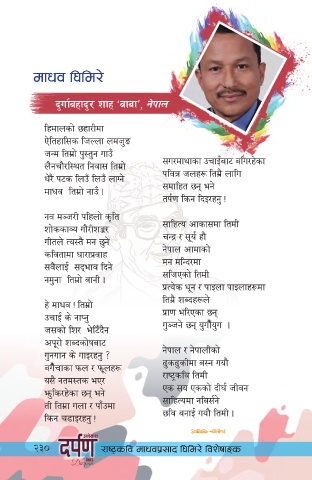 माधव घिमिरे
दुर्गाबहादुर शाह 'बाबा', नेपाल
हिमालको छहारीमा
ऐतिहासिक जिल्ला लमजुङ
जन्म तिम्रो पुस्तुन गाउँ
लैनचौरस्थित निवास तिम्रो
धेरै पटक लिउँ लिउँ लाग्ने
माधव तिम्रो नाउँ ।
नव मञ्जरी पहिलो कृति
शोककाव्य गौरीशङ्कर
गीतले त्यस्तै मन छुने
कवितामा धाराप्रवाह
सबैलाई सद्‌भाव दिने
नमुना तिम्रो बानी ।
हे माधव ! तिम्रो
उचाई के नाप्नु
जसको शिर भेटिँदैन
अपूरो शब्दकोषबाट
गुनगान के गाइरहनु ?
बगैँचाका फल र फूलहरू
यसै नतमस्तक भएर
झुकिरहेका छन् भने
ती तिम्रा गला र पाउँमा
किन चढाइरहनु !
सगरमाथाका उचाईबाट बगिरहेका
पवित्र जलहरू तिम्रै लागि
समाहित छन् भने
तर्पण किन दिइरहनु !
साहित्य आकासमा तिमी
चन्द्र र सूर्य हौ
नेपाल आमाको
मन मन्दिरमा
सजिएको तिमी
प्रत्येक धून र पाइला पाइलाहरूमा
तिम्रै शब्दहरूले
प्राण भरिएका छन्
गुञ्जने छन् युगौँयुग ।
नेपाल र नेपालीको
ढुकढुकीमा बस्न गयौ
राष्ट्रकवि तिमी
एक सय एकको दीर्घ जीवन
साहित्यमा नबिर्सने
छवि बनाई गयौ तिमी ।
२३० दर्पण राष्ट्रकवि माधवप्रसाद घिमिरे विशेषाङ्क